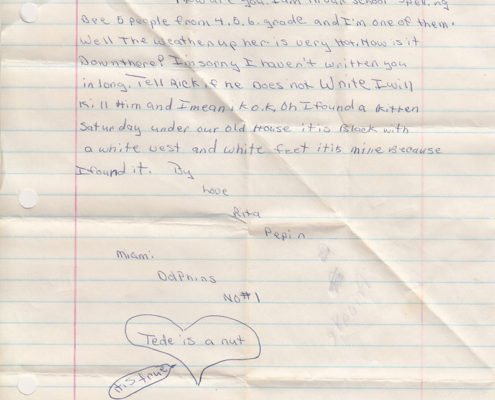 How are you. I am in our school spelling
Bee 5 people from 4.5.6. grade and I'm one of them.
Well The weather up her is very Hot. How is it
Down there? I'm sorry I haven't written you
in long. Tell Rick if he Does not Write I will
Kill Him and I mean it, k o.k. Oh I found a Kitten
Saturday under our old House it is Black with
a white vest and white feet it is mine Because
I found it. By
Love
Rita
Pepin
Miami
Dolphins
NO#1
Tede is a nut
it's true